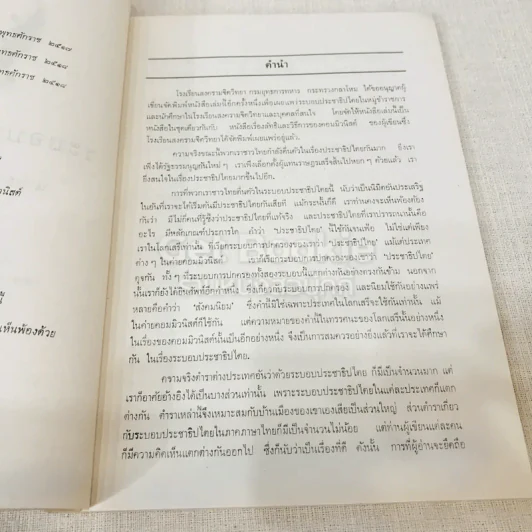 พุทธศักราช ๒๕๑๗
พุทธศักราช ๒๕๑๘
พุทธศักราช ๒๕๑๘
เห็นพ้องด้วย
คำนำ
โรงเรียนสงครามจิตวิทยา กรมยุทธการทหาร กระทรวงกลาโหม ได้ขออนุญาตผู้
เขียนจัดพิมพ์หนังสือเล่มนี้อีกครั้งหนึ่งเพื่อเผยแพร่ระบอบประชาธิปไตยในหมู่ข้าราชการ
และนักศึกษาในโรงเรียนสงครามจิตวิทยาและบุคคลที่สนใจ โดยจัดให้หนังสือเล่มนี้เป็น
หนังสือในชุดเดียวกันกับ หนังสือเรื่องลัทธิและวิธีการของคอมมิวนิสต์ ของผู้เขียนซึ่ง
โรงเรียนสงครามจิตวิทยาได้จัดเผยแพร่อยู่แล้ว
ความจริงขณะนี้พวกเราชาวไทยกำลังตื่นตัวในเรื่องประชาธิปไตยกันมาก ยิ่งเรา
เพิ่งได้รัฐธรรมนูญอันใหม่ ๆ เราเพิ่งเลือกตั้งผู้แทนราษฎรเสร็จสิ้นไปหยก ๆ ด้วยแล้ว เรา
ยิ่งสนใจในเรื่องประชาธิปไตยมากขึ้นไปอีก
การที่พวกเราชาวไทยตื่นตัวในระบอบประชาธิปไตยนี้ นับว่าเป็นนิมิตอันประเสริฐ
ในอันที่เราจะได้เริ่มต้นมีประชาธิปไตยกันเสียที แม้กระนั้นก็ดี เราท่านคงจะเห็นพ้องต้อง
กันว่า มีไม่กี่คนที่รู้ซึ้งว่าประชาธิปไตยที่แท้จริง และประชาธิปไตยที่เราปรารถนานั้นคือ
อะไร มีหลักเกณฑ์ประการใด คำว่า 'ประชาธิปไตย' นี้ใช้กันจนเฟ้อ ไม่ใช่แต่เพียง
เราในโลกเสรีเท่านั้น ที่เรียกระบอบการปกครองของเราว่า 'ประชาธิปไตย' แม้แต่ประเทศ
ต่าง ๆ ในค่ายคอมมิวนิสต์ เขาก็เรียกระบอบการปกครองของเขาว่า 'ประชาธิปไตย'
ดุจกัน ทั้ง ๆ ที่ระบอบการปกครองทั้งสองระบอบนี้แตกต่างกันอย่างตรงกันข้าม นอกจาก
นั้นเราก็ยังได้ยินศัพท์อีกคำหนึ่ง ซึ่งเกี่ยวกับระบอบการปกครอง และนิยมใช้กันอย่างแพร่
หลายคือคำว่า 'สังคมนิยม' ซึ่งคำนี้มิใช่เฉพาะประเทศในโลกเสรีจะใช้กันเท่านั้น แม้
ในค่ายคอมมิวนิสต์ก็ใช้กัน แต่ความหมายของคำนี้ในทรรศนะของโลกเสรีนั้นอย่างหนึ่ง
ในเรื่องของคอมมิวนิสต์นั้นเป็นอีกอย่างหนึ่ง จึงเป็นการสมควรอย่างยิ่งแล้วที่เราจะได้ศึกษา
กัน ในเรื่องระบอบประชาธิปไตย.
ความจริงตำราต่างประเทศอันว่าด้วยระบอบประชาธิปไตย ก็มีเป็นจำนวนมาก แต่
เราก็อาศัยอ้างอิงได้เป็นบางส่วนเท่านั้น เพราะระบอบประชาธิปไตยในแต่ละประเทศก็แตก
ต่างกัน ตำราเหล่านี้จึงเหมาะสมกับบ้านเมืองของเขาเองเสียเป็นส่วนใหญ่ ส่วนตำราเกี่ยว
กับระบอบประชาธิปไตยในภาคภาษาไทยก็มีเป็นจำนวนไม่น้อย แต่ท่านผู้เขียนแต่ละคน
ก็มีความคิดเห็นแตกต่างกันออกไป ซึ่งก็นับว่าเป็นเรื่องที่ดี ดังนั้น การที่ผู้อ่านจะยึดถือ